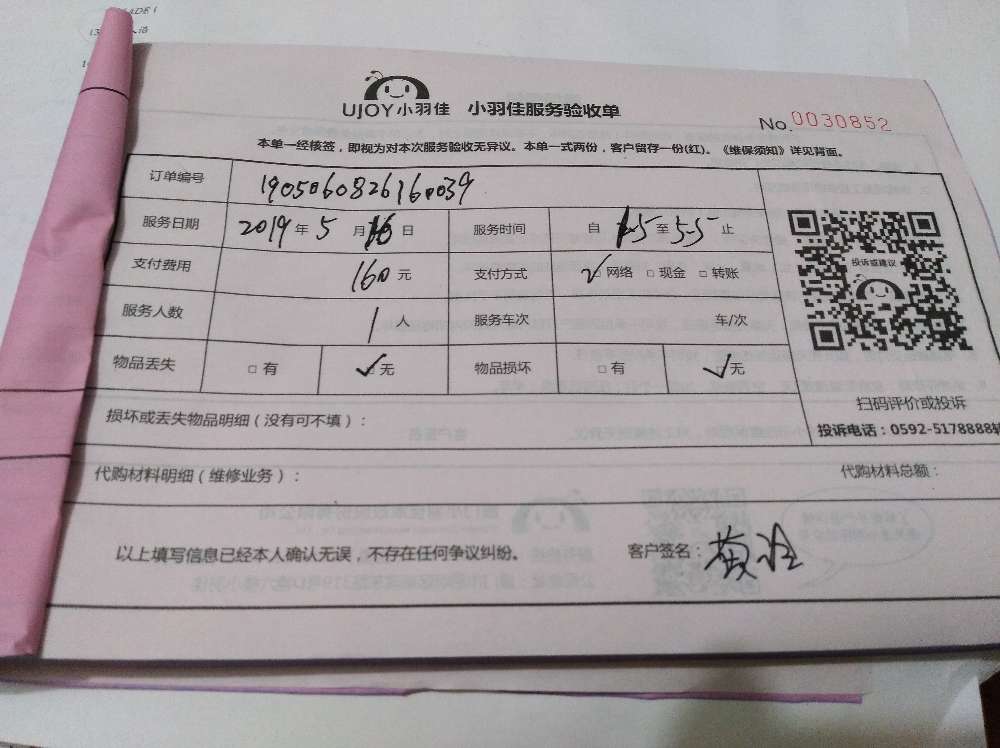 UJOY小羽佳 小羽佳服务验收单
No.0030852
本单一经核签，即视为对本次服务验收无异议。本单一式两份，客户留存一份(红)。《维保须知》详见背面。
订单编号 1905060826160039
服务日期 2019年5月16日 服务时间 自 至 5-5 止
支付费用 160元 支付方式 √□网络 □现金 □转账
服务人数 1人 服务车次 车/次
物品丢失 □有 √□无 物品损坏 □有 √□无
投诉或建议
扫码评价或投诉
投诉电话：0592-5178888转
损坏或丢失物品明细（没有可不填）：
代购材料明细（维修业务）： 代购材料总额：
以上填写信息已经本人确认无误，不存在任何争议纠纷。 客户签名：黄